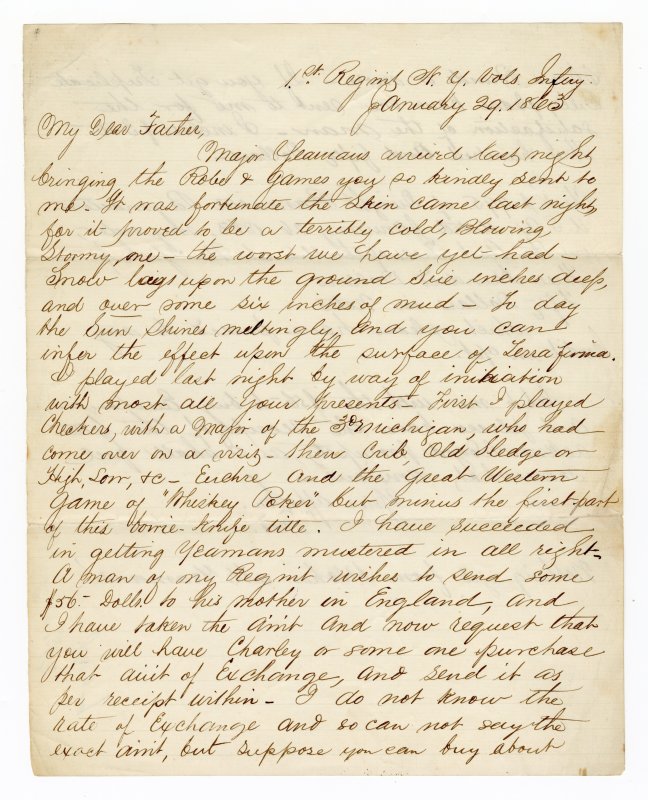 1st. Regimt N. Y. Vols Infny
January 29. 1863
My Dear Father,
Major Yeamans arrivd last night
bringing the Robe & games you so kindly sent to
me. It was fortunate the skin came last night,
for it proved to be a terribly cold, Blowing
stormy, one - the worst we have yet had -
Snow lays upon the ground Six inches deep,
and over some six inches of mud - To day
the Sun shines meltingly, and you can
infer the effect upon the surface of Terra firma.
I played last night by way of initiation
with most all your presents - First I played
Checkers, with a Major of the 3d Michigan, who had
come over on a visit - then Crib, Old Sledge or
High, Low, &c - Euchre and the Great Western
game of "Whiskey Poker" but minus the first part
of this bowie-knife title. I have succeeded
in getting Yeamans mustered in all right -
A man of my Regimt wishes to send some
$56- Dolls to his mother in England, and
I have taken the amt and now request that
you will have Charley or some one purchase
that amt of Exchange, and send it as
per receipt within - I do not know the
rate of Exchange and so can not say the
exact amt, but suppose you can buy about